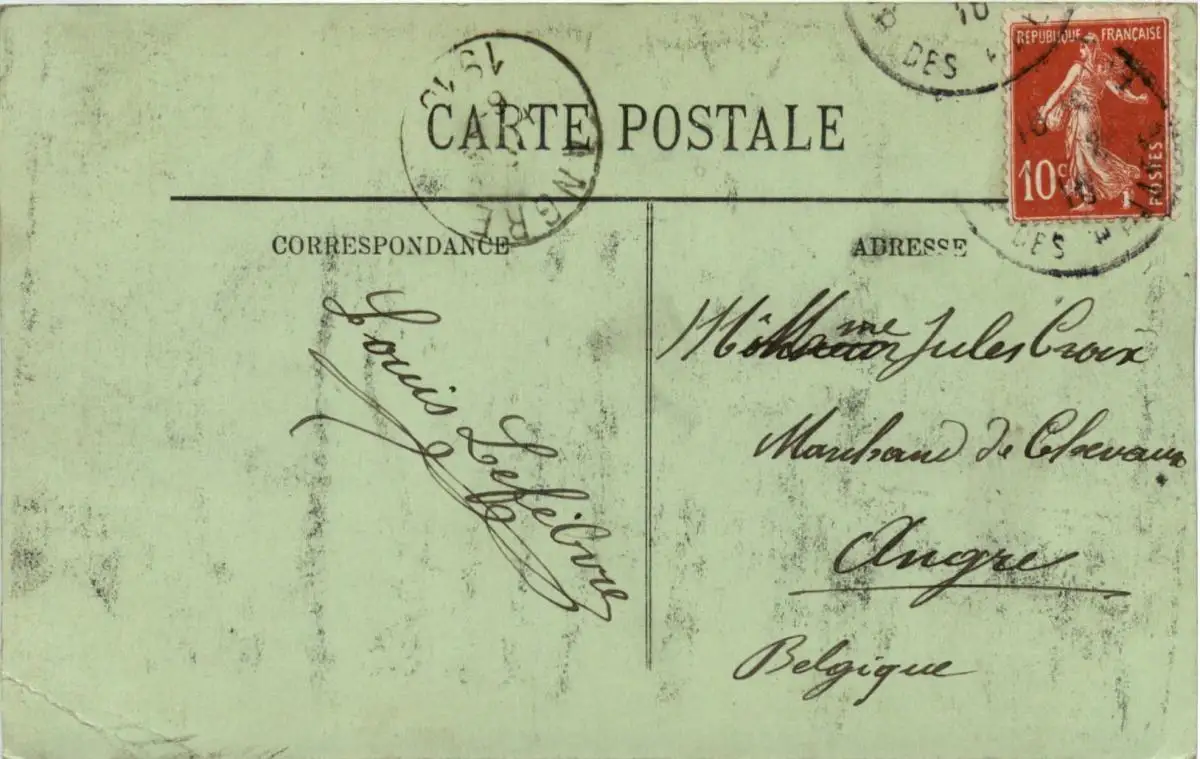 DES
10
RÉPUBLIQUE FRANÇAISE
10c
POSTES
ANGRE
CARTE POSTALE
CORRESPONDANCE
ADRESSE
DES
Louis Lefébvre
me Jules Croix
Marchand de Chevaux
Angre
Belgique